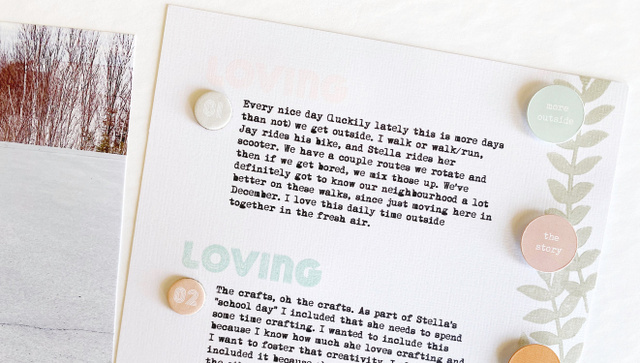 LOVING
01
Every nice day (luckily lately this is more days
than not) we get outside. I walk or walk/run,
Jay rides his bike, and Stella rides her
scooter. We have a couple routes we rotate and
then if we get bored, we mix those up. We've
definitely got to know our neighbourhood a lot
better on these walks, since just moving here in
December. I love this daily time outside
together in the fresh air.
more
outside
the
story
LOVING
02
The crafts, oh the crafts. As part of Stella's
"school day" I included that she needs to spend
some time crafting. I wanted to include this
because I know how much she loves crafting and
I want to foster that creativity. I
included it because